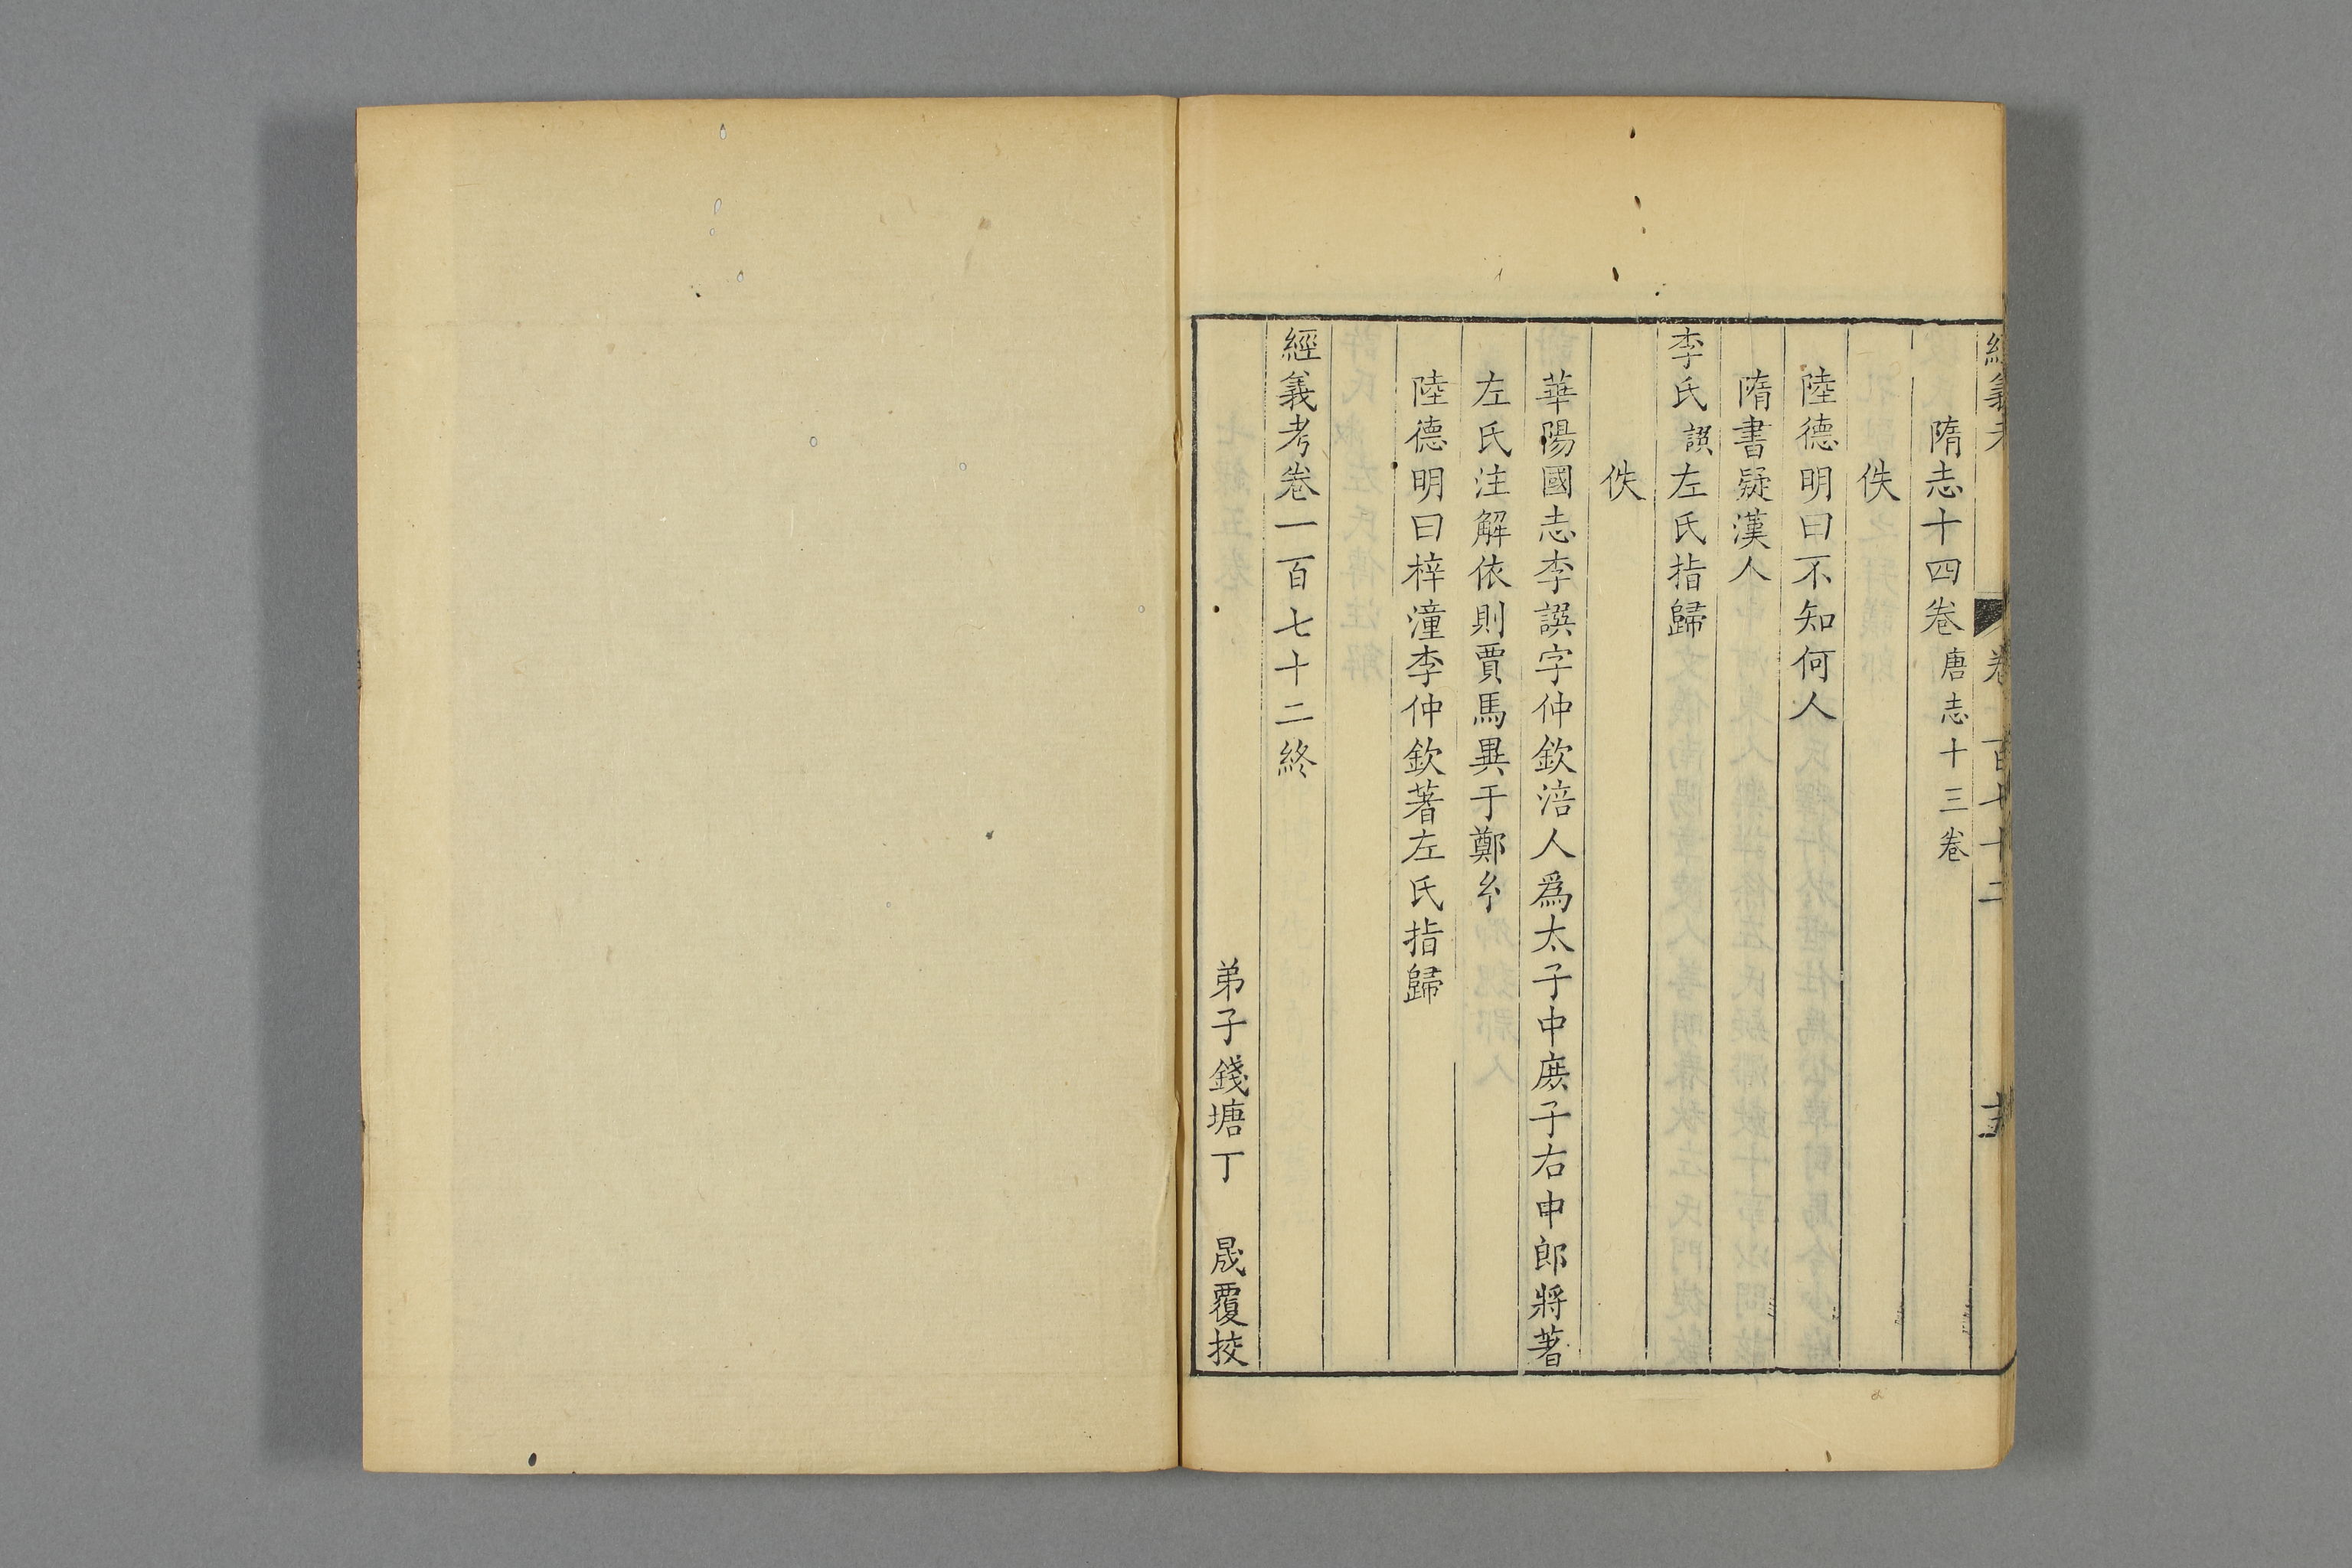 經義考 卷一百七十二
隋志十四卷唐志十三卷
佚
陸德明曰不知何人
隋書疑漢人
李氏譔左氏指歸
佚
華陽國志李譔字仲欽涪人爲太子中庶子右中郎將著
左氏注解依則賈馬異于鄭𤣥
陸德明曰梓潼李仲欽著左氏指歸
經義考卷一百七十二終
弟子錢塘丁 晟覆挍